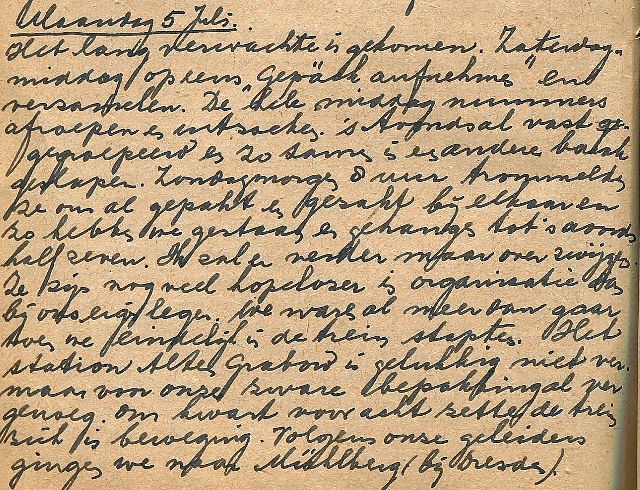 Maandag 5 Juli.
Het lang verwachte is gekomen. Zaterdag-
middag opeens "Gepäck aufnehmen" en
versamelen. De hele middag nummers
afroepen en uitzoeken. 's Avonds al vast
gegroepeerd en zo samen in een andere barak
geslapen. Zondagmorgen 8 uur trommelden
ze ons al gepakt en gezakt bij elkaar en
zo hebben we gestaan en gehangen tot 's avonds
half zeven. Ik zal er verder maar over zwijgen.
Ze zijn nog veel hopelozer in organisatie dan
bij ons eigen leger. We waren al meer dan gaar
toen we eindelijk in de trein stapten. Het
station Alten Grabow is gelukkig niet ver.
maar voor onze zware bepakking al ver
genoeg om kwart voor acht zette de trein
zich in beweging. Volgens onze geleiders
gingen we naar Mühlberg (bij Dresden).